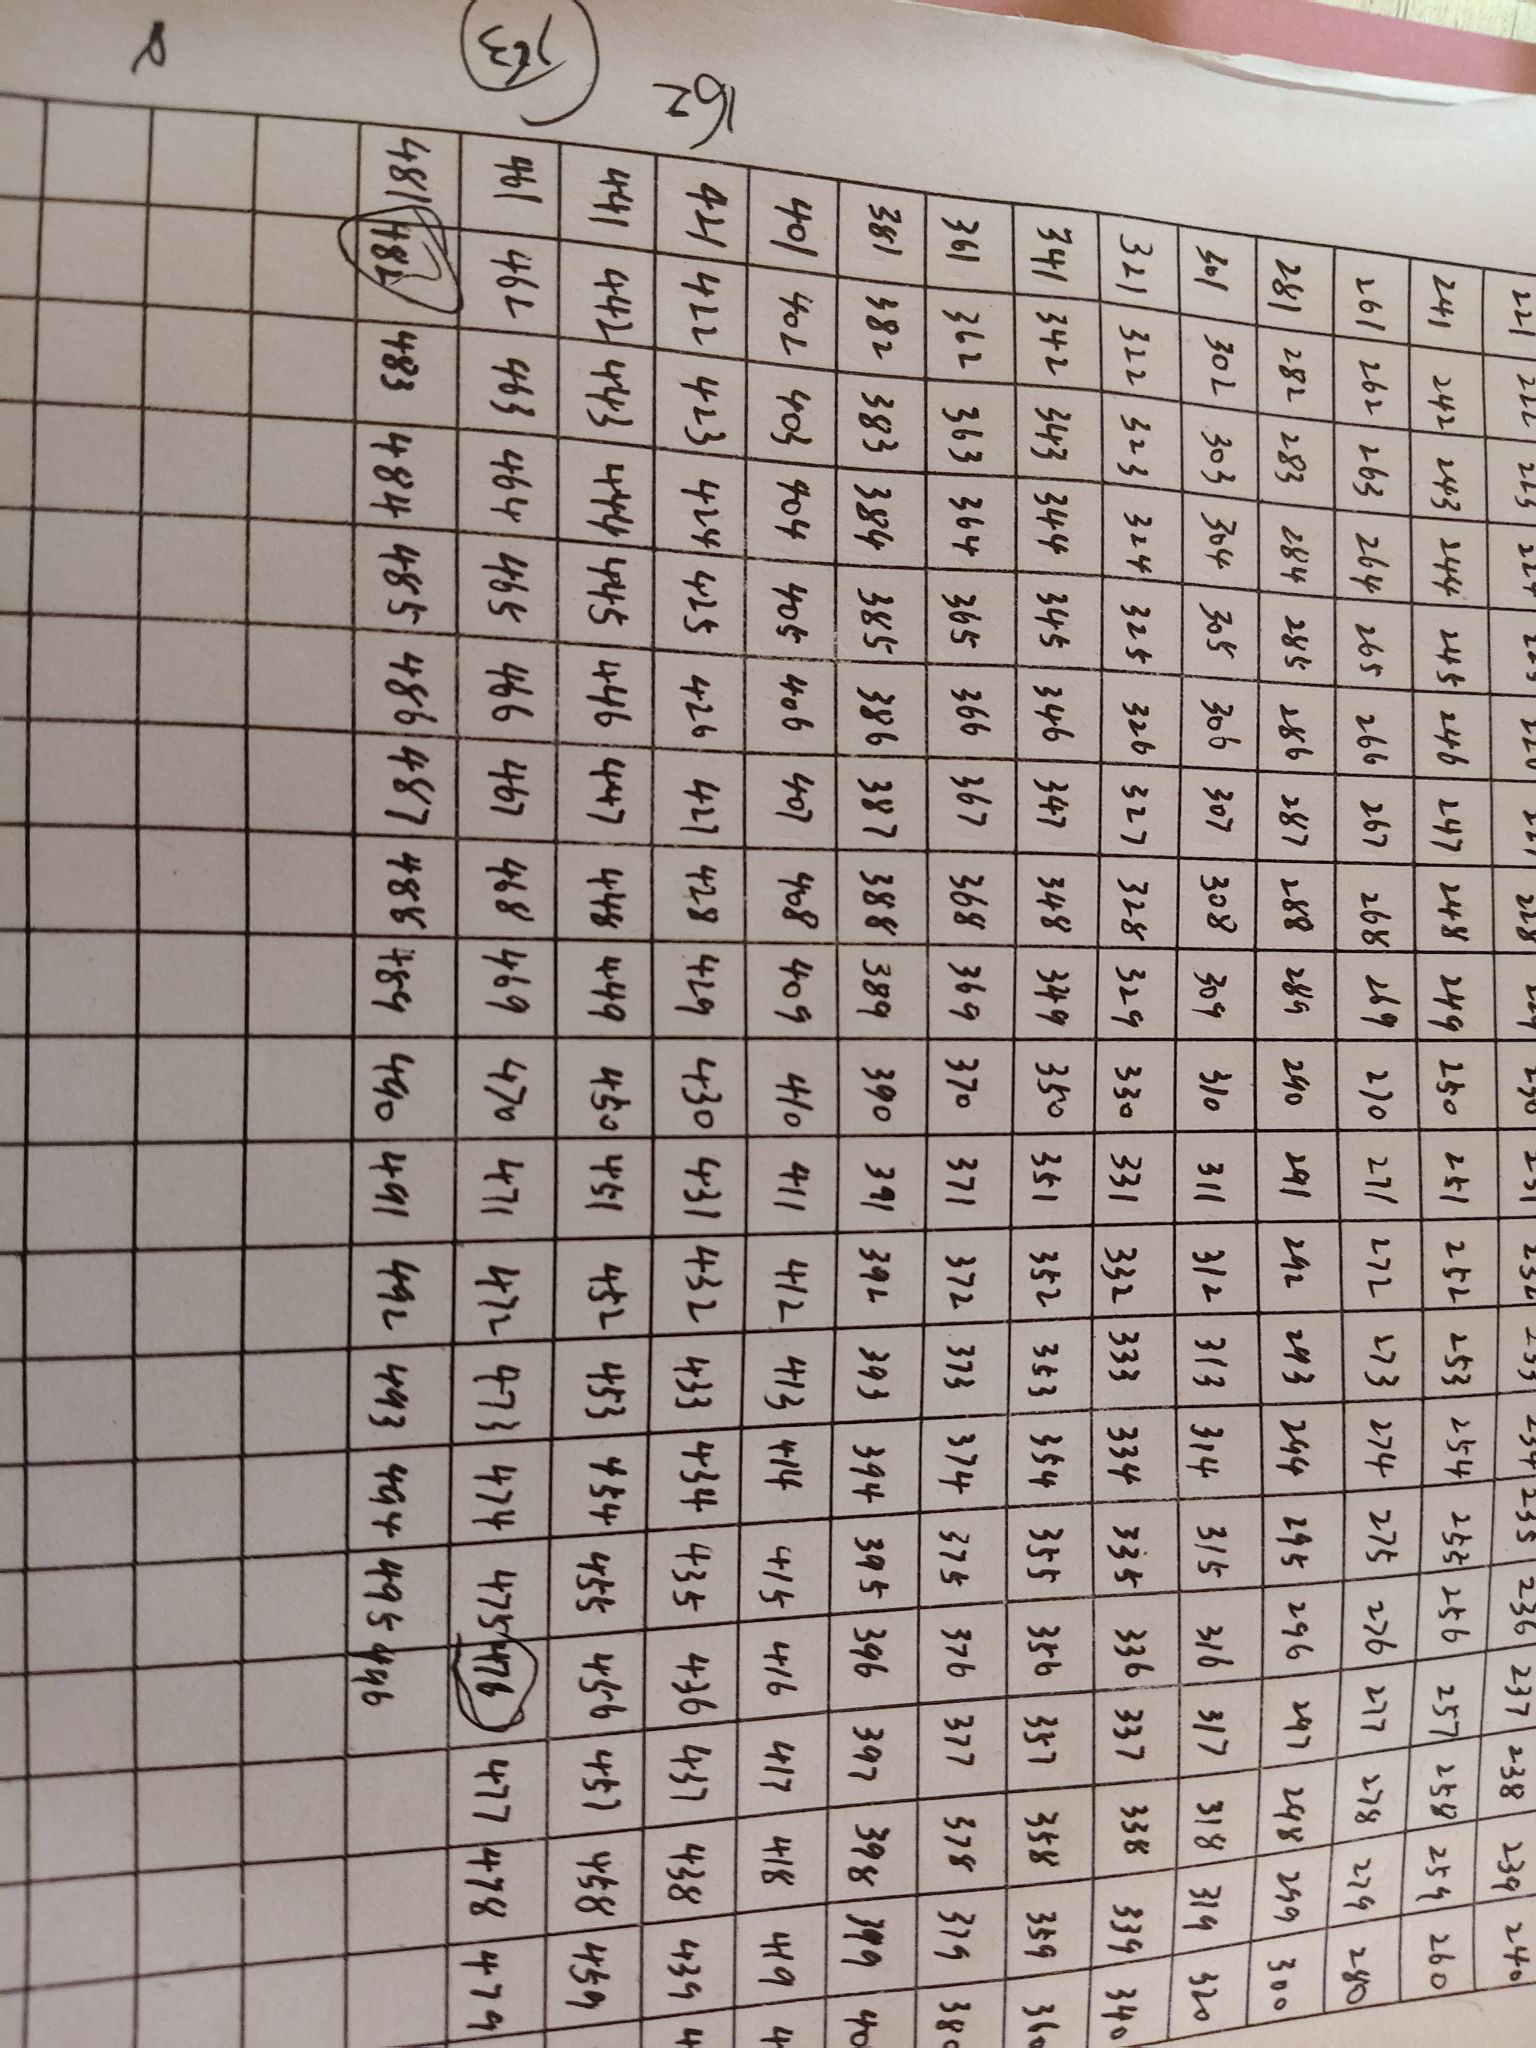 221 222 223 224 225 226 227 228 229 230 231 232 233 234 235 236 237 238 239 240
241 242 243 244 245 246 247 248 249 250 251 252 253 254 255 256 257 258 259 260
261 262 263 264 265 266 267 268 269 270 271 272 273 274 275 276 277 278 279 280
281 282 283 284 285 286 287 288 289 290 291 292 293 294 295 296 297 298 299 300
301 302 303 304 305 306 307 308 309 310 311 312 313 314 315 316 317 318 319 320
321 322 323 324 325 326 327 328 329 330 331 332 333 334 335 336 337 338 339 340
341 342 343 344 345 346 347 348 349 350 351 352 353 354 355 356 357 358 359 360
361 362 363 364 365 366 367 368 369 370 371 372 373 374 375 376 377 378 379 380
381 382 383 384 385 386 387 388 389 390 391 392 393 394 395 396 397 398 399 40
401 402 403 404 405 406 407 408 409 410 411 412 413 414 415 416 417 418 419 4
421 422 423 424 425 426 427 428 429 430 431 432 433 434 435 436 437 438 439 4
441 442 443 444 445 446 447 448 449 450 451 452 453 454 455 456 457 458 459
461 462 463 464 465 466 467 468 469 470 471 472 473 474 475 476 477 478 479
481 482 483 484 485 486 487 488 489 490 491 492 493 494 495 496